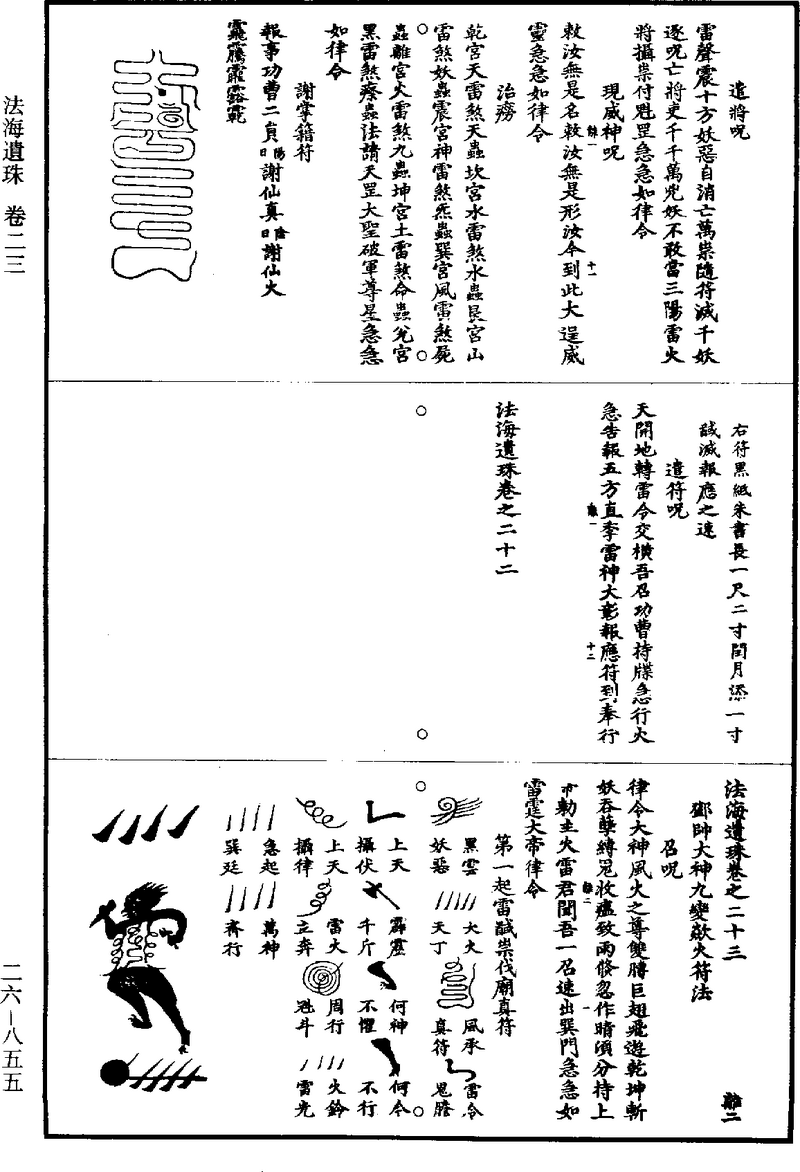 法海遺珠 卷二三
二六—八五五
遣將呪
雷聲震十方妖惡自消亡萬祟隨符滅千妖
逐呪亡將吏千千萬兇妖不敢當三陽雷火
將攝祟付魁罡急急如律令
現威神呪
敕汝無是名敕汝無是形汝今到此大逞威
靈急急如律令
治癆
乾宮天雷煞天蟲坎宮水雷煞水蟲艮宮山
雷煞妖蟲震宮神雷煞炁蟲巽宮風雷煞屍
蟲離宮火雷煞九蟲坤宮土雷煞命蟲兌宮
黑雷煞瘵蟲法請天罡大聖破軍尊星急急
如律令
謝掌籍符
報事功曹二員陽日謝仙真陰日謝仙火
右符黑紙朱書長一尺二寸閏月添一寸
馘滅報應之速
遣符呪
天開地轉雷令交橫吾召功曹持牒急行火
急告報五方直李雷神大彰報應符到奉行
法海遺珠卷之二十二
法海遺珠卷之二十三
離二
鄧帥大神九變歘火符法
召呪
律令大神風火之尊雙睛巨翅飛遊乾坤斬
妖吞孽縛鬼收瘟致雨倏忽作晴須分持上
帝勑主火雷君聞吾一召速出巽門急急如
雷霆大帝律令
第一起雷馘祟伐廟真符
黑雲
妖惡
火火
天丁
風承
真符
雷令
鬼膽
上天
攝伏
霹靂
千斤
何神
不懼
何令
不行
上天
攝律
雷火
立奔
周行
魁斗
火鈴
雷光
急起
巽廷
萬神
齊行